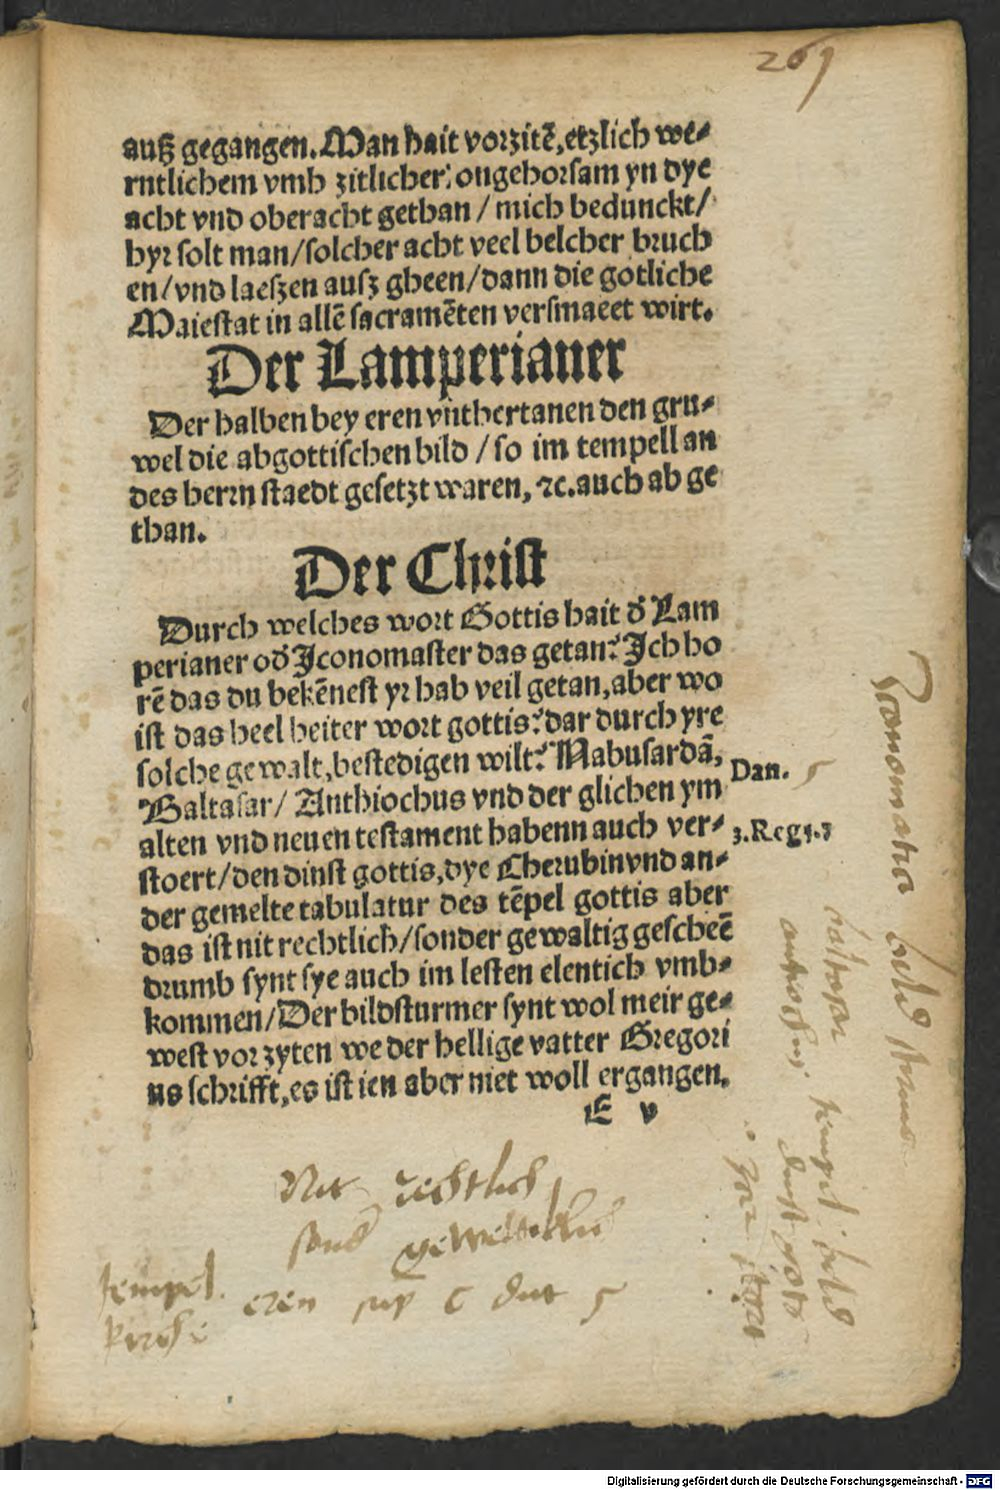 269
auß gegangen. Man hait vorzitẽ, etzlich we⸗
rntlichem vmb zitlicher: ongehorsam yn dye
acht vnd oberacht gethan / mich bedunckt /
hyr solt man / solcher acht veel belcher bruch
en / vnd laeszen ausz gheen / dann die gotliche
Maiestat in allẽ sacramẽten versmaeet wirt.
Der Lamperianer
Der halben bey eren vnthertanen den gru⸗
wel die abgottischen bild / so im tempell an
des herrn staedt gesetzt waren, ⁊c. auch ab ge
than.
Der Christ
Durch welches wort Gottis hait d̕ Lam
perianer od̕ Iconomaster das getan? Ich ho
rẽ das du bekẽnest yr hab veil getan, aber wo
ist das heel heiter wort gottis? dar durch yre
solche gewalt, bestedigen wilt? Nabusardã,
Baltasar / Anthiochus vnd der glichen ym
alten vnd neuen testament habenn auch ver⸗
stoert / den dinst gottis, dye Cherubin vnd an⸗
der gemelte tabulatur des tẽpel gottis aber
das ist nit rechtlich / sonder gewaltig gescheẽ
drumb synt sye auch im lesten elentich vmb⸗
kommen / Der bildsturmer synt wol meir ge⸗
west vor zyten we der hellige vatter Gregori
us schrifft, es ist ien aber niet woll ergangen.
E v
Dan. 5
3. Reg. 7
baltasar
tempel bild
dinst gots
Nit rechtlich
gewaltiklich
tempel
kirch
eren
Digitalisierung gefördert durch die Deutsche Forschungsgemeinschaft - DFG